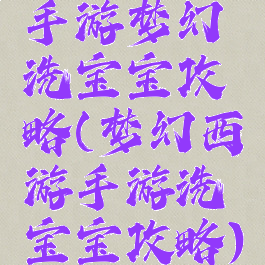 手游梦幻
洗宝宝攻
略(梦幻西
游手游洗
宝宝攻略)